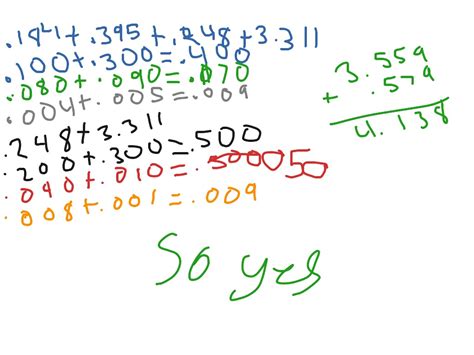 .184+.395+.248+3.311
.100+.300=.400
.080+.090=.070
.004+.005=.009
.248+3.311
.200+.300=.500
.040+.010=.050
.008+.001=.009
3.559
+ .579
4.138
So yes